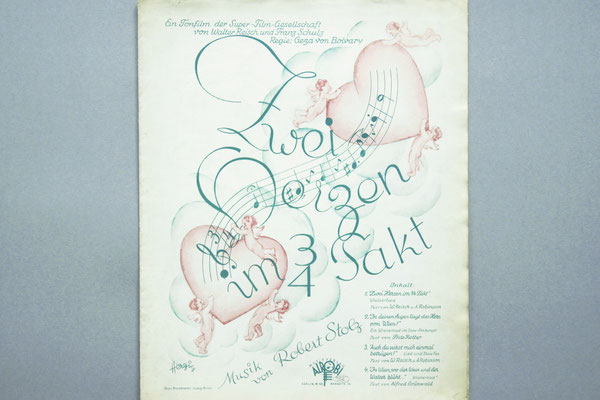 Ein Tonfilm der Super-Film-Gesellschaft
von Walter Reisch und Franz Schulz
Regie: Geza von Bolvary
Zwei
Herzen
im 3/4 Takt
Musik
von Robert Stolz
Inhalt:
1. "Zwei Herzen im 3/4 Takt"
Text von W. Reisch u. A. Robinson
2. "In deinen Augen liegt das Herz
von Wien!"
Text von Fritz Rotter
3. "Auch du wirst mich einmal
betrügen!"
Text von W. Reisch u. A. Robinson
4. "In Wien, wo der Wein und der
Walzer blüht..."
Text von Alfred Grünwald
ALROBI